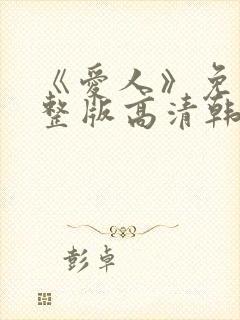 《爱人》免
整版高清韩
彭卓